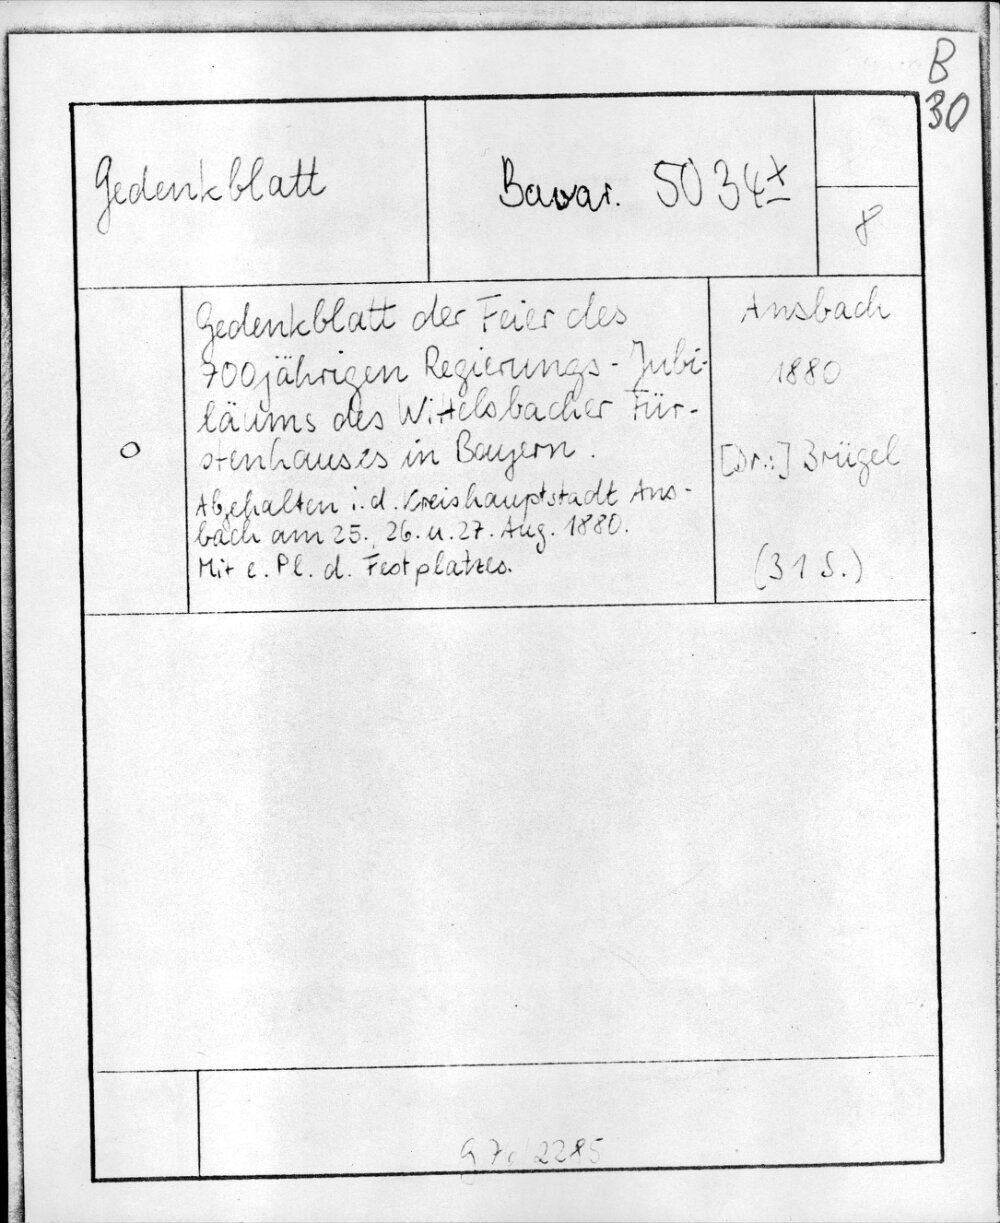 B
30
Gedenkblatt
Bavar. 5034 ±
8
Gedenkblatt der Feier des
700jährigen Regierungs-Jubi-
läums des Wittelsbacher Für-
stenhauses in Bayern.
Abgehalten i. d. Kreishauptstadt Ans-
bach am 25., 26. u. 27. Aug. 1880.
Mit e. Pl. d. Festplatzes.
O
Ansbach
1880
[Dr.:] Brügel
(31 S.)
2285